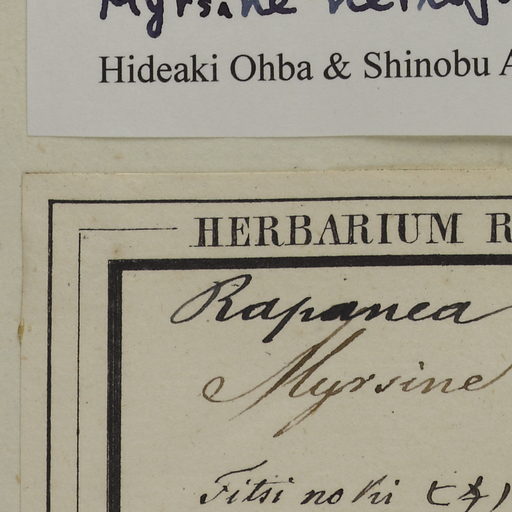 Myrsine
Hideaki Ohba & Shinobu A
HERBARIUM R
Rapanea
Myrsine
Fitsi no ki